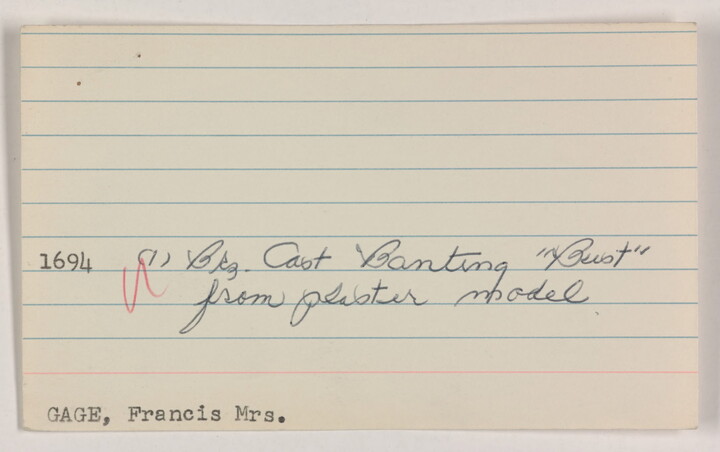 1694 (1) Brz. Cast Banting "Bust"
from plaster model
GAGE, Francis Mrs.